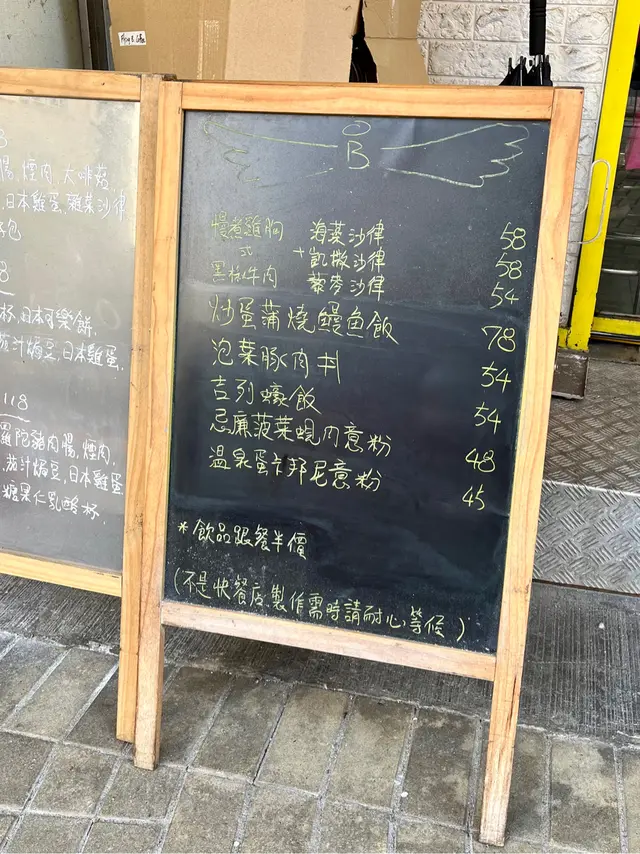 Frog & Toke
8
腸, 煙肉, 大啡菇
日本雞蛋, 雜菜沙律
包
8
杯, 日本可樂餅,
茄汁焗豆, 日本雞蛋,
118
羅陀豬肉腸, 煙肉,
茄汁焗豆, 日本雞蛋
糖果仁乳酸杯.
B
慢煮雞胸 海菜沙律 58
或 + 凱撒沙律 58
黑椒牛肉 藜麥沙律 54
炒蛋蒲燒鰻魚飯 78
泡菜豚肉丼 54
吉列蠔飯 54
忌廉菠菜蜆肉意粉 48
溫泉蛋卡邦尼意粉 45
*飲品跟餐半價
(不是快餐店.製作需時請耐心等候)